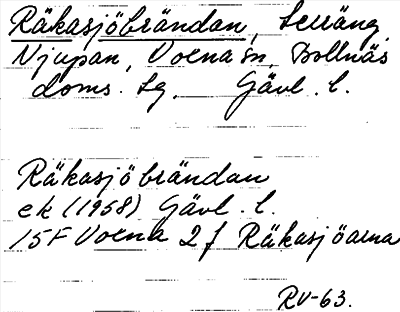 Räkasjöbrändan, Seuräng,
Njupan, Voxna sn, Bollnäs
doms. sg. Gävl. l.
Räkasjöbrändan
ek (1958) Gävl. l.
15F Voxna 2f Räkasjöarna
RV-63.